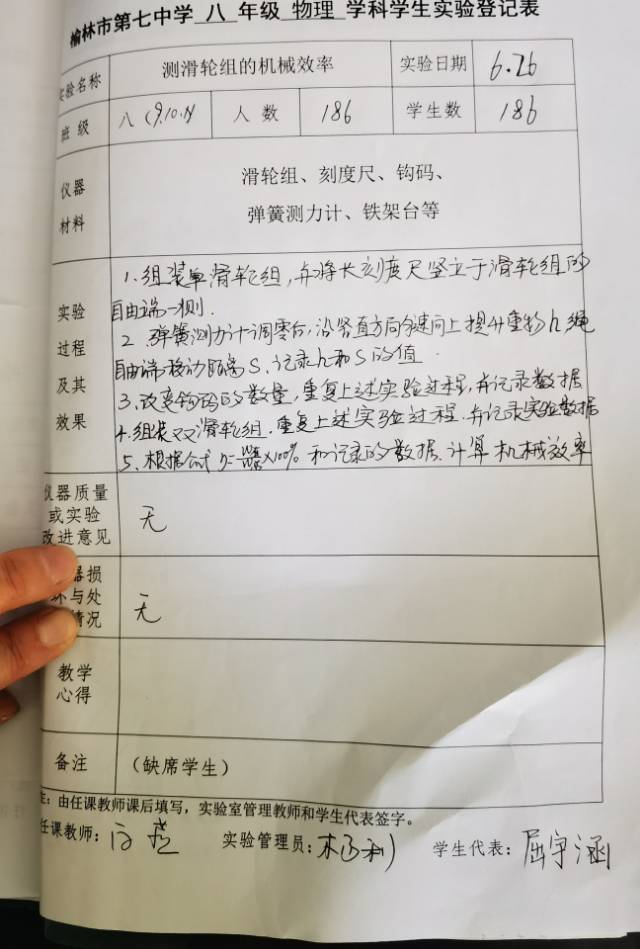 榆林市第七中学 八 年级 物理 学科学生实验登记表
实验名称 测滑轮组的机械效率 实验日期 6.26
班级 八(9.10.11) 人数 186 学生数 186
仪器 滑轮组、刻度尺、钩码、
材料 弹簧测力计、铁架台等
实验
过程
及其
效果
1.组装单滑轮组,并将长刻度尺竖立于滑轮组的
自由端一侧.
2.弹簧测力计调零后,沿竖直方向匀速向上提升重物h,绳
自由端移动距离S,记录h和S的值.
3.改变钩码的数量,重复上述实验过程,并记录数据
4.组装双滑轮组.重复上述实验过程.并记录实验数据
5.根据公式 和记录的数据.计算机械效率
仪器质量
或实验
改进意见
无
器损
坏与处
情况
无
教学
心得
备注 (缺席学生)
注:由任课教师课后填写,实验室管理教师和学生代表签字。
任课教师: 实验管理员: 学生代表:屈宇涵